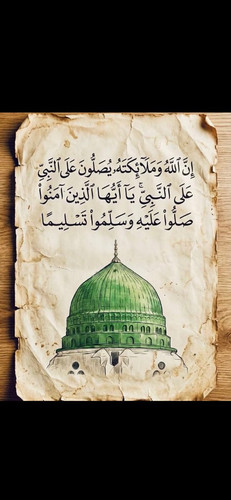 إِنَّ ٱللَّهَ وَمَلَـٰٓئِكَتَهُۥ يُصَلُّونَ عَلَى ٱلنَّبِىِّ
عَلَى ٱلنَّبِىِّ ۚ يَـٰٓأَيُّهَا ٱلَّذِينَ آمَنُوا۟
صَلُّوا۟ عَلَيْهِ وَسَلِّمُوا۟ تَسْلِيمًا